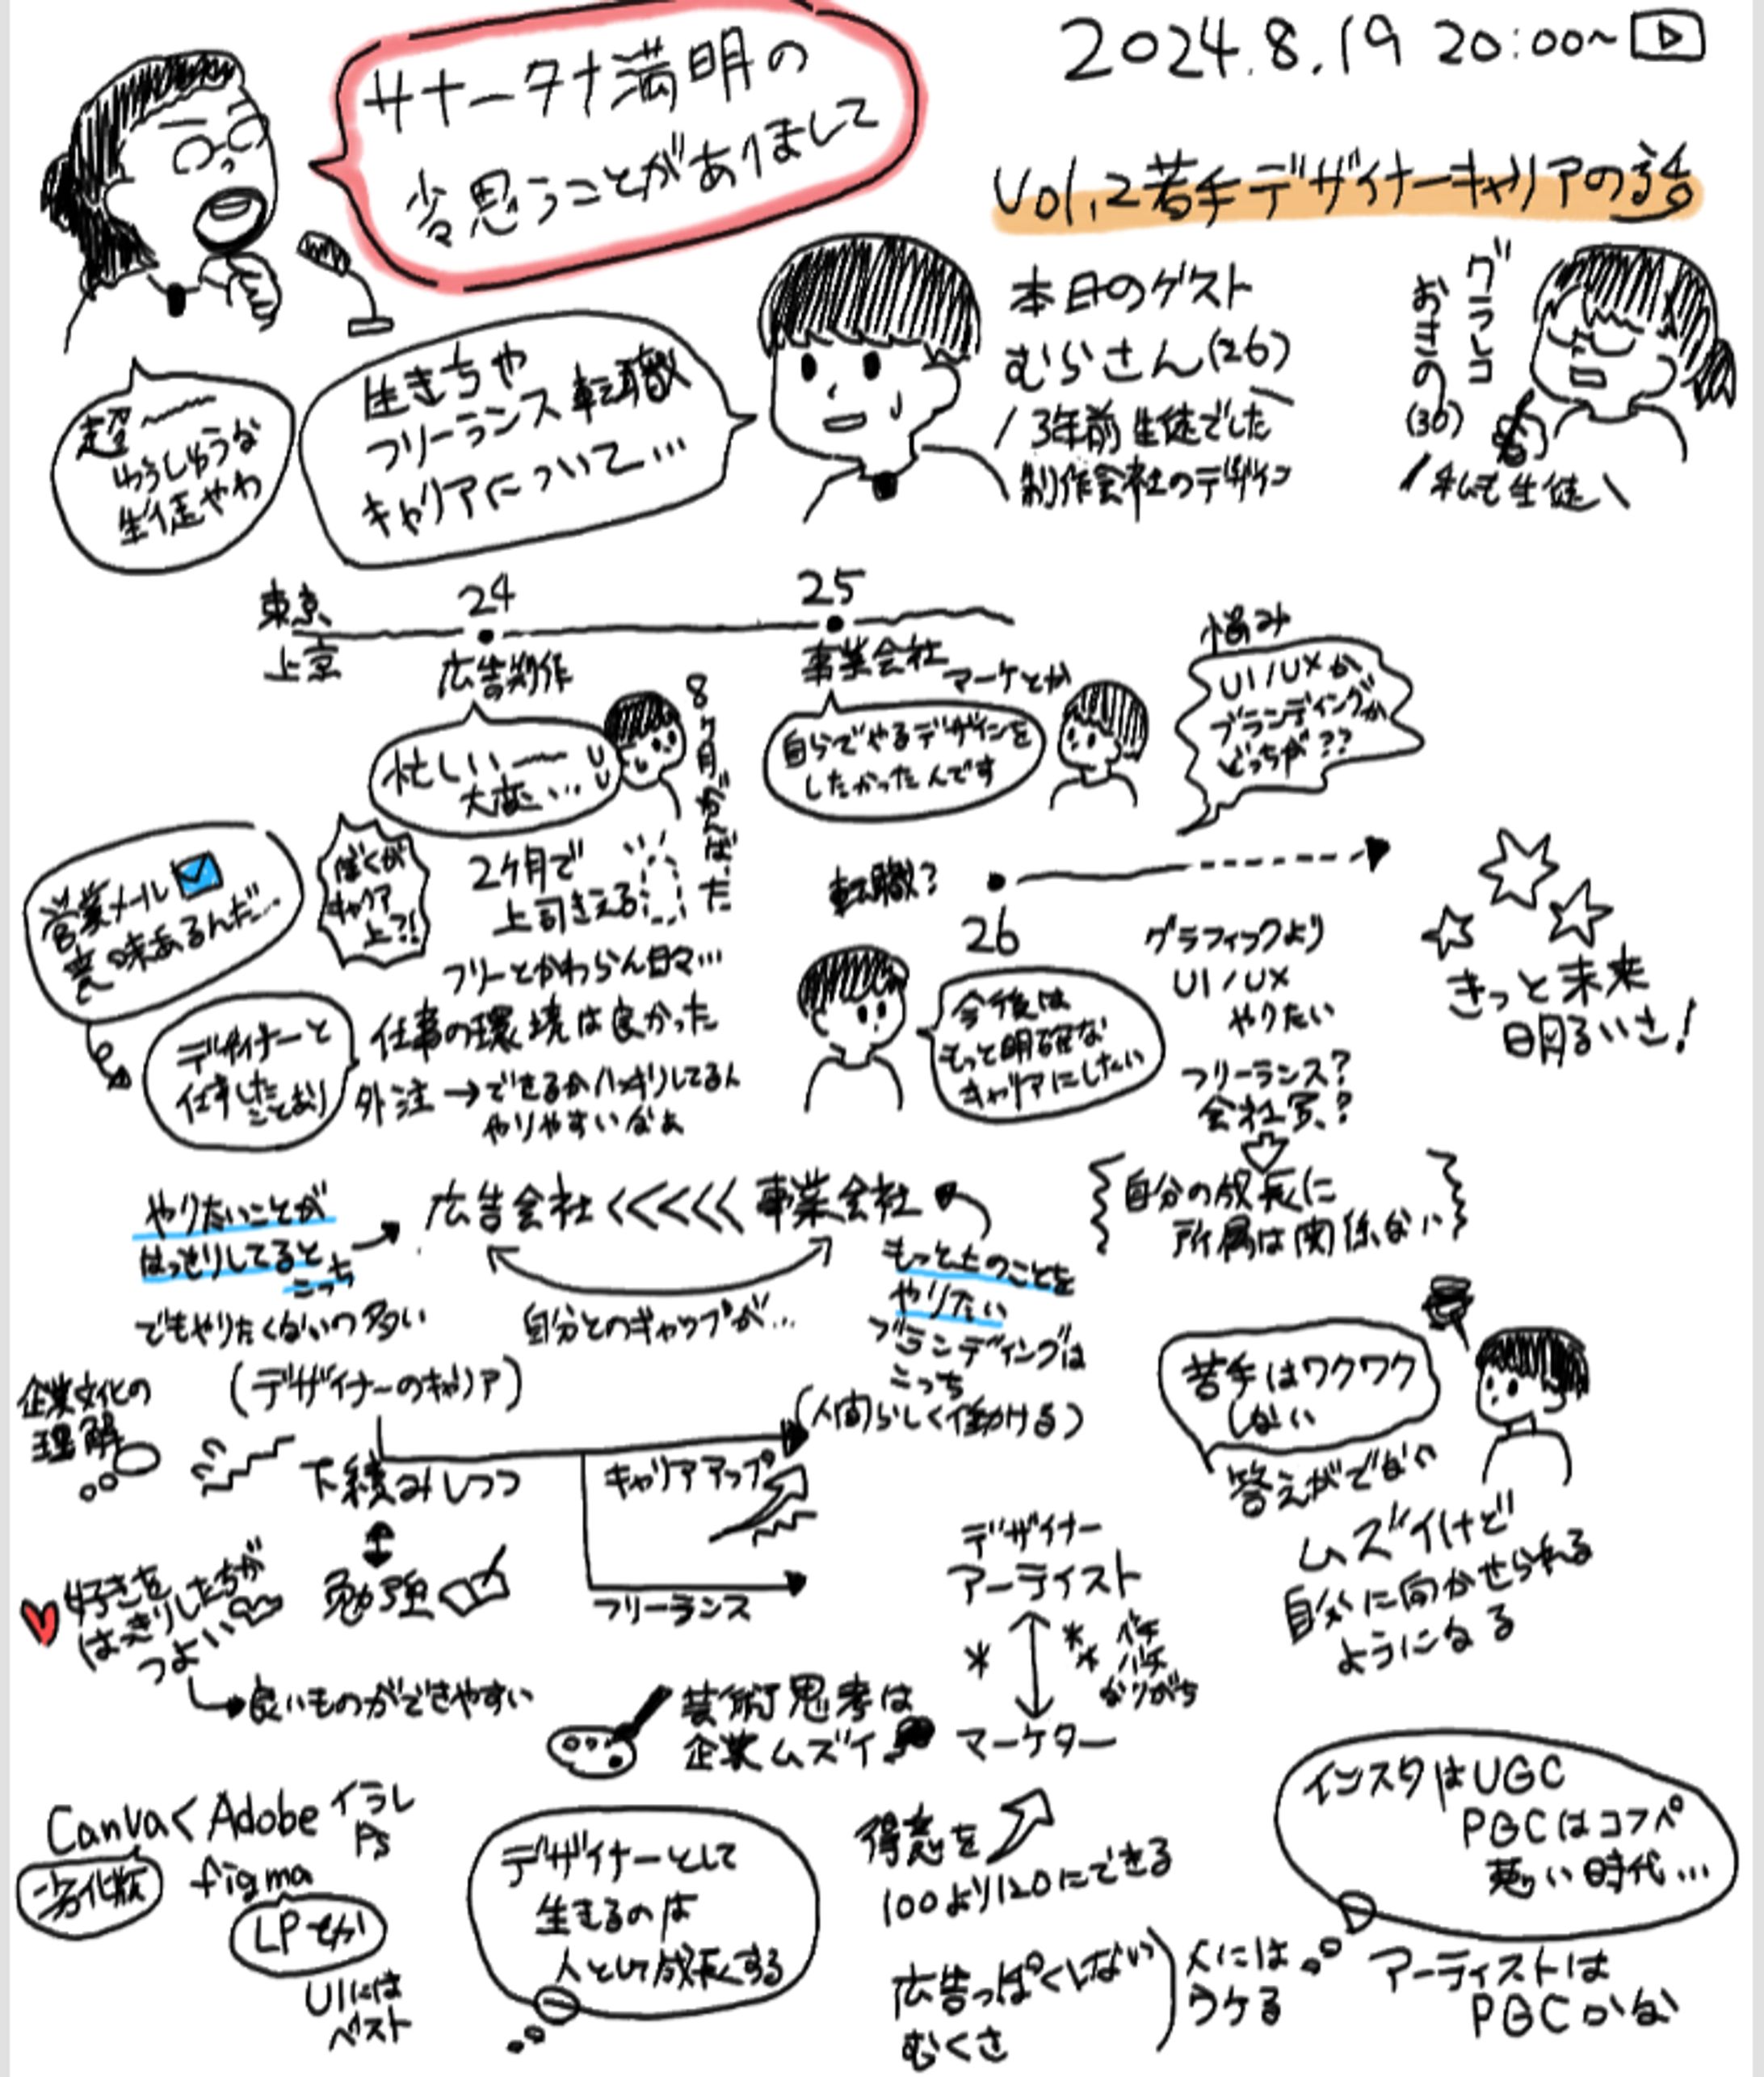 サナータナ満明の
少々思うことがありまして
2024.8.19 20:00~
Vol.2 若手デザイナーキャリアの話
超〜
ゆうしゅうな
生徒やわ
生き方や
フリーランス転職
キャリアについて…
本日のゲスト
むらさん(26)
3年前生徒でした
制作会社のデザイン
グラレコ
おきの
(30)
私も生徒
東京
上京
24
広告制作
25
事業会社
マーケとか
悩み
UI/UXか
ブランディングか
どっちが??
忙しいー
大変…
8ヶ月がんばった
自らでやるデザインを
したかったんです
営業メール
意味あるんだ…
ぼくが
キャリア
上?!
2ヶ月で
上司きえる
フリーとかわらん日々…
デザイナーと
仕事したことあり
仕事の環境は良かった
外注→できるかハッキリしてるん
やりやすいなぁ
転職?
26
今後は
もっと明確な
キャリアにしたい
グラフィックより
UI/UX
やりたい
フリーランス?
会社員?
自分の成長に
所属は関係ない
きっと未来
明るいさ!
やりたいことが
はっきりしてると
こっち
でもやりたくないの多い
広告会社<<<<<事業会社
自分とのギャップが…
もっと上のことを
やりたい
ブランディングは
こっち
(人間らしく働ける)
企業文化の
理解
(デザイナーのキャリア)
下積みしつつ
勉強
キャリアアップ
フリーランス
苦手はワクワク
しない
答えがでない
ムズイけど
自分に向かせられる
ようになる
好きを
はっきりしたちが
つよい
良いものができやすい
デザイナー
アーティスト
バチ
バチ
なりがち
マーケター
芸術思考は
企業ムズイ
Canva<Adobe イラレ
Ps
劣化版
figma
LPとか
UIには
ベスト
デザイナーとして
生きるのは
人として成長する
得意を
100より120にできる
広告っぽくしない
むくさ
人には
ウケる
インスタはUGC
PGCはコスパ
悪い時代…
アーティストは
PGCかな